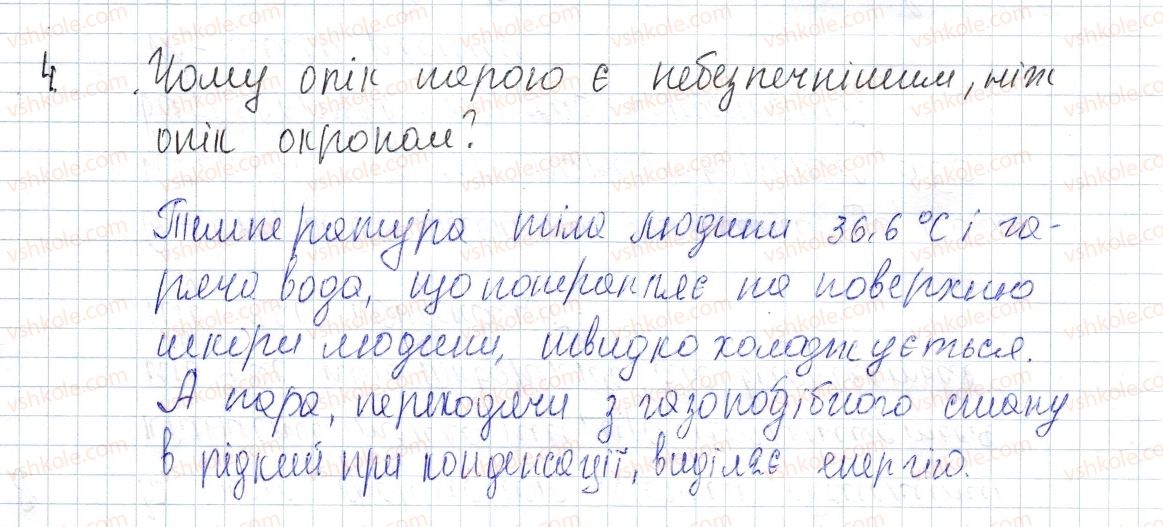 4. Чому опік парою є небезпечнішим, ніж
опік окропом?
Температура тіла людини 36,6 °C і га-
ряча вода, що потрапляє на поверхню
шкіри людини, швидко холоджується.
А пара, переходячи з газоподібного стану
в рідкий при конденсації, виділяє енергію.